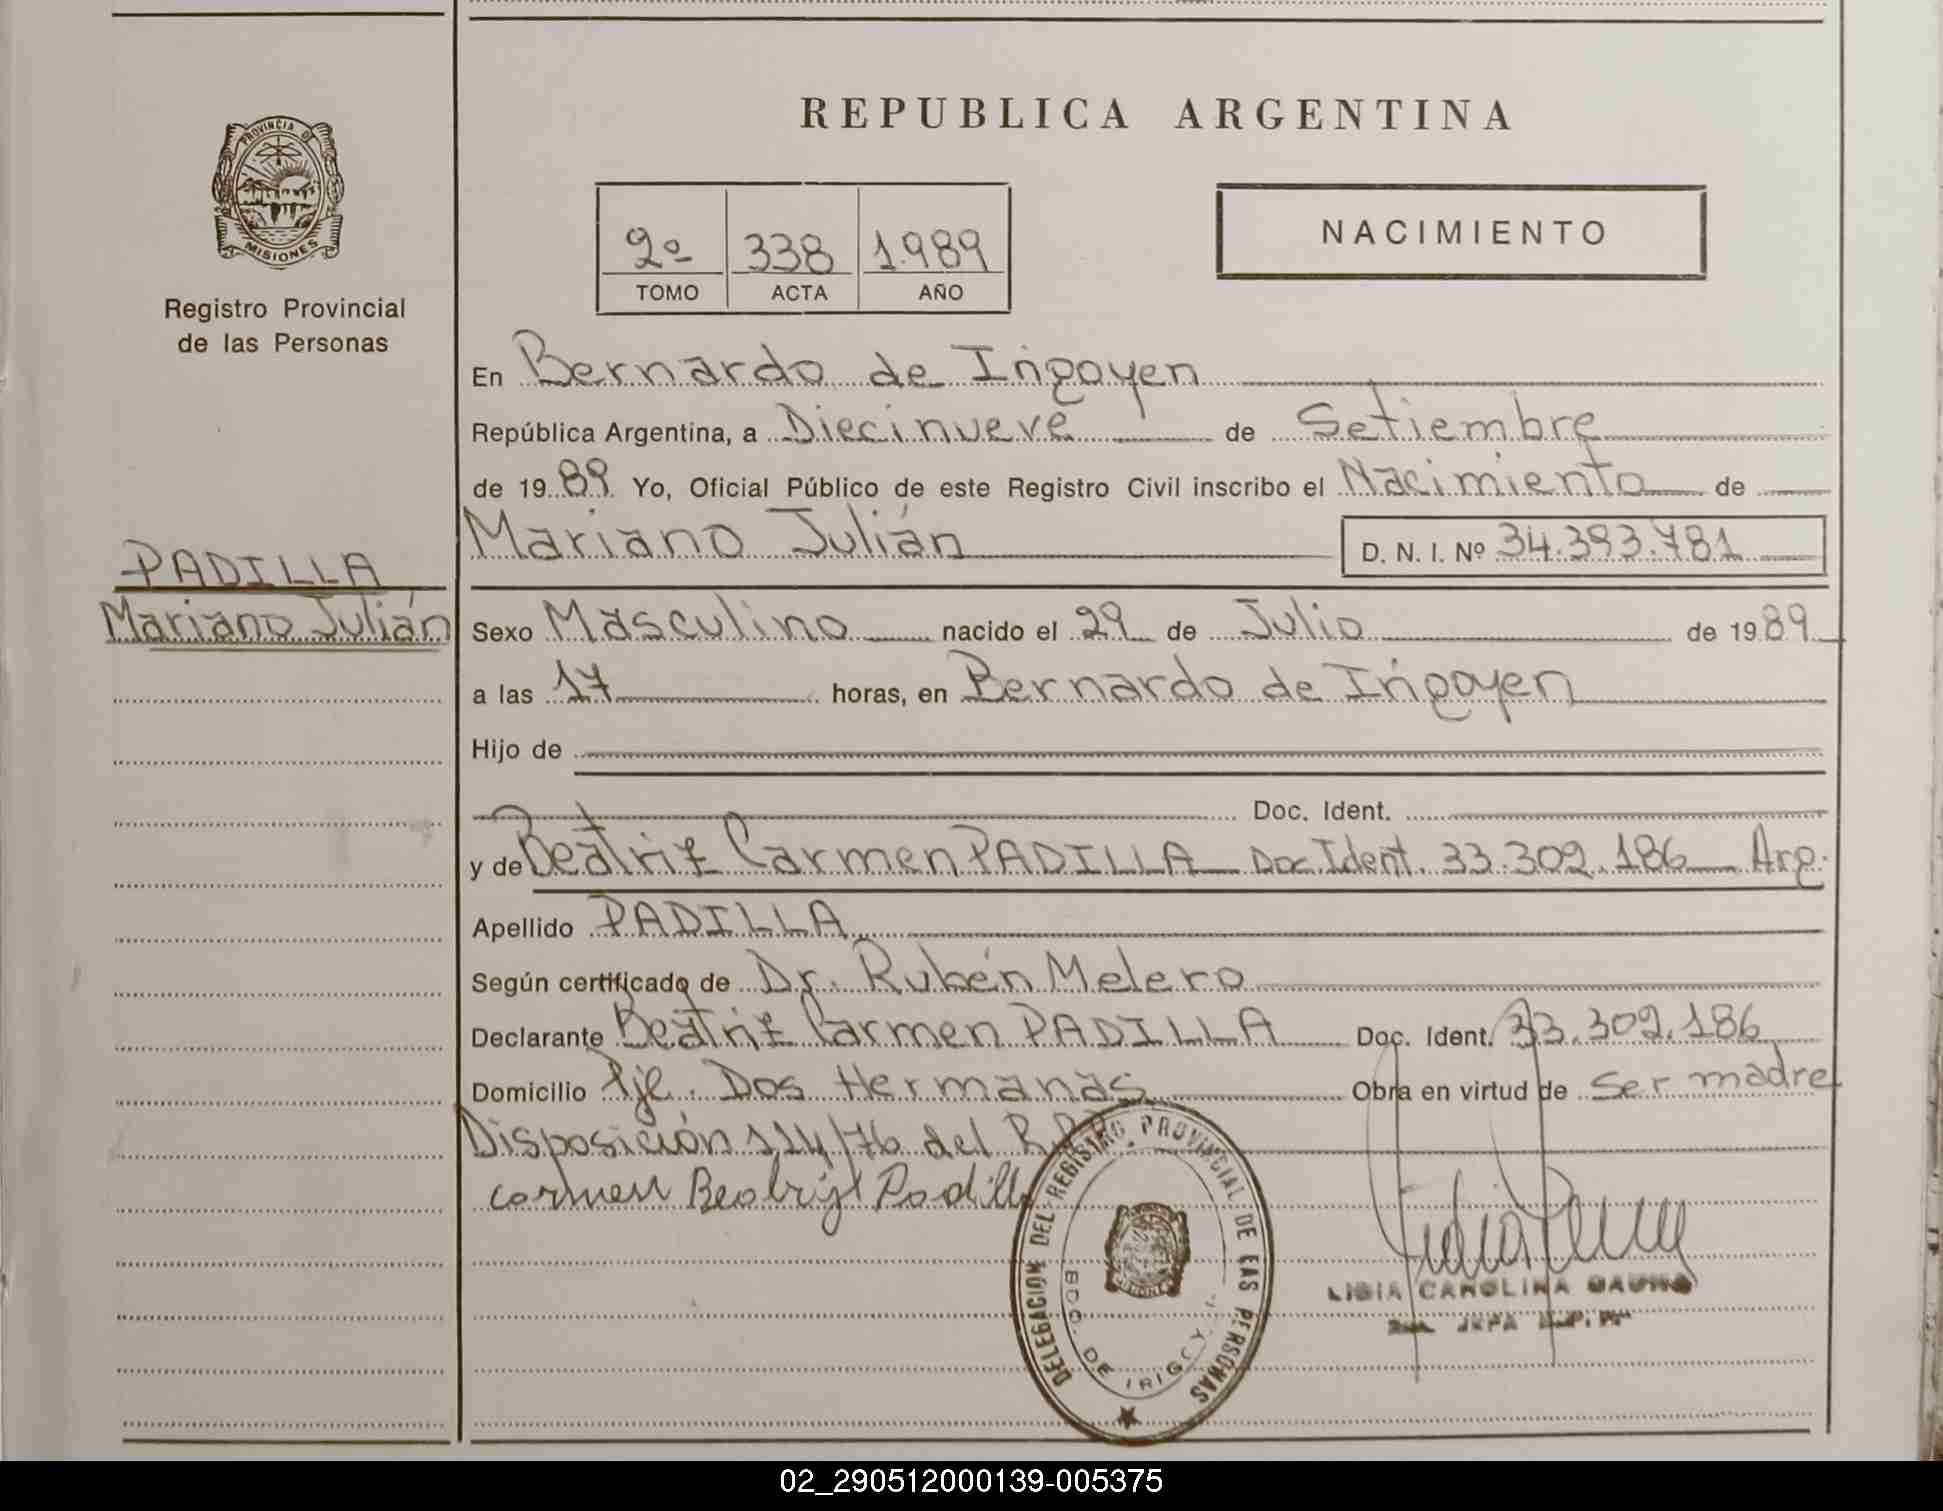 PROVINCIA DE
MISIONES
Registro Provincial
de las Personas
REPUBLICA ARGENTINA
2º 338 1.989
TOMO ACTA AÑO
NACIMIENTO
En Bernardo de Irigoyen
República Argentina, a Diecinueve de Setiembre
de 1989 Yo, Oficial Público de este Registro Civil inscribo el Nacimiento de
Mariano Julián D. N. I. Nº 34.393.781
PADILLA
Mariano Julián
Sexo Masculino nacido el 29 de Julio de 1989
a las 17 horas, en Bernardo de Irigoyen
Hijo de
Doc. Ident.
y de Beatriz Carmen PADILLA Doc. Ident. 33.302.186 Arg.
Apellido PADILLA
Según certificado de Dr. Rubén Melero
Declarante Beatriz Carmen PADILLA Doc. Ident. 33.302.186
Domicilio Pje. Dos Hermanas Obra en virtud de ser madre
Disposición 114/76 del R.P.P.
Carmen Beatriz Padilla
DELEGACION DEL REGISTRO PROVINCIAL DE LAS PERSONAS
BDO. DE IRIGOY
LIGIA CAROLINA
JEFA
02_290512000139-005375